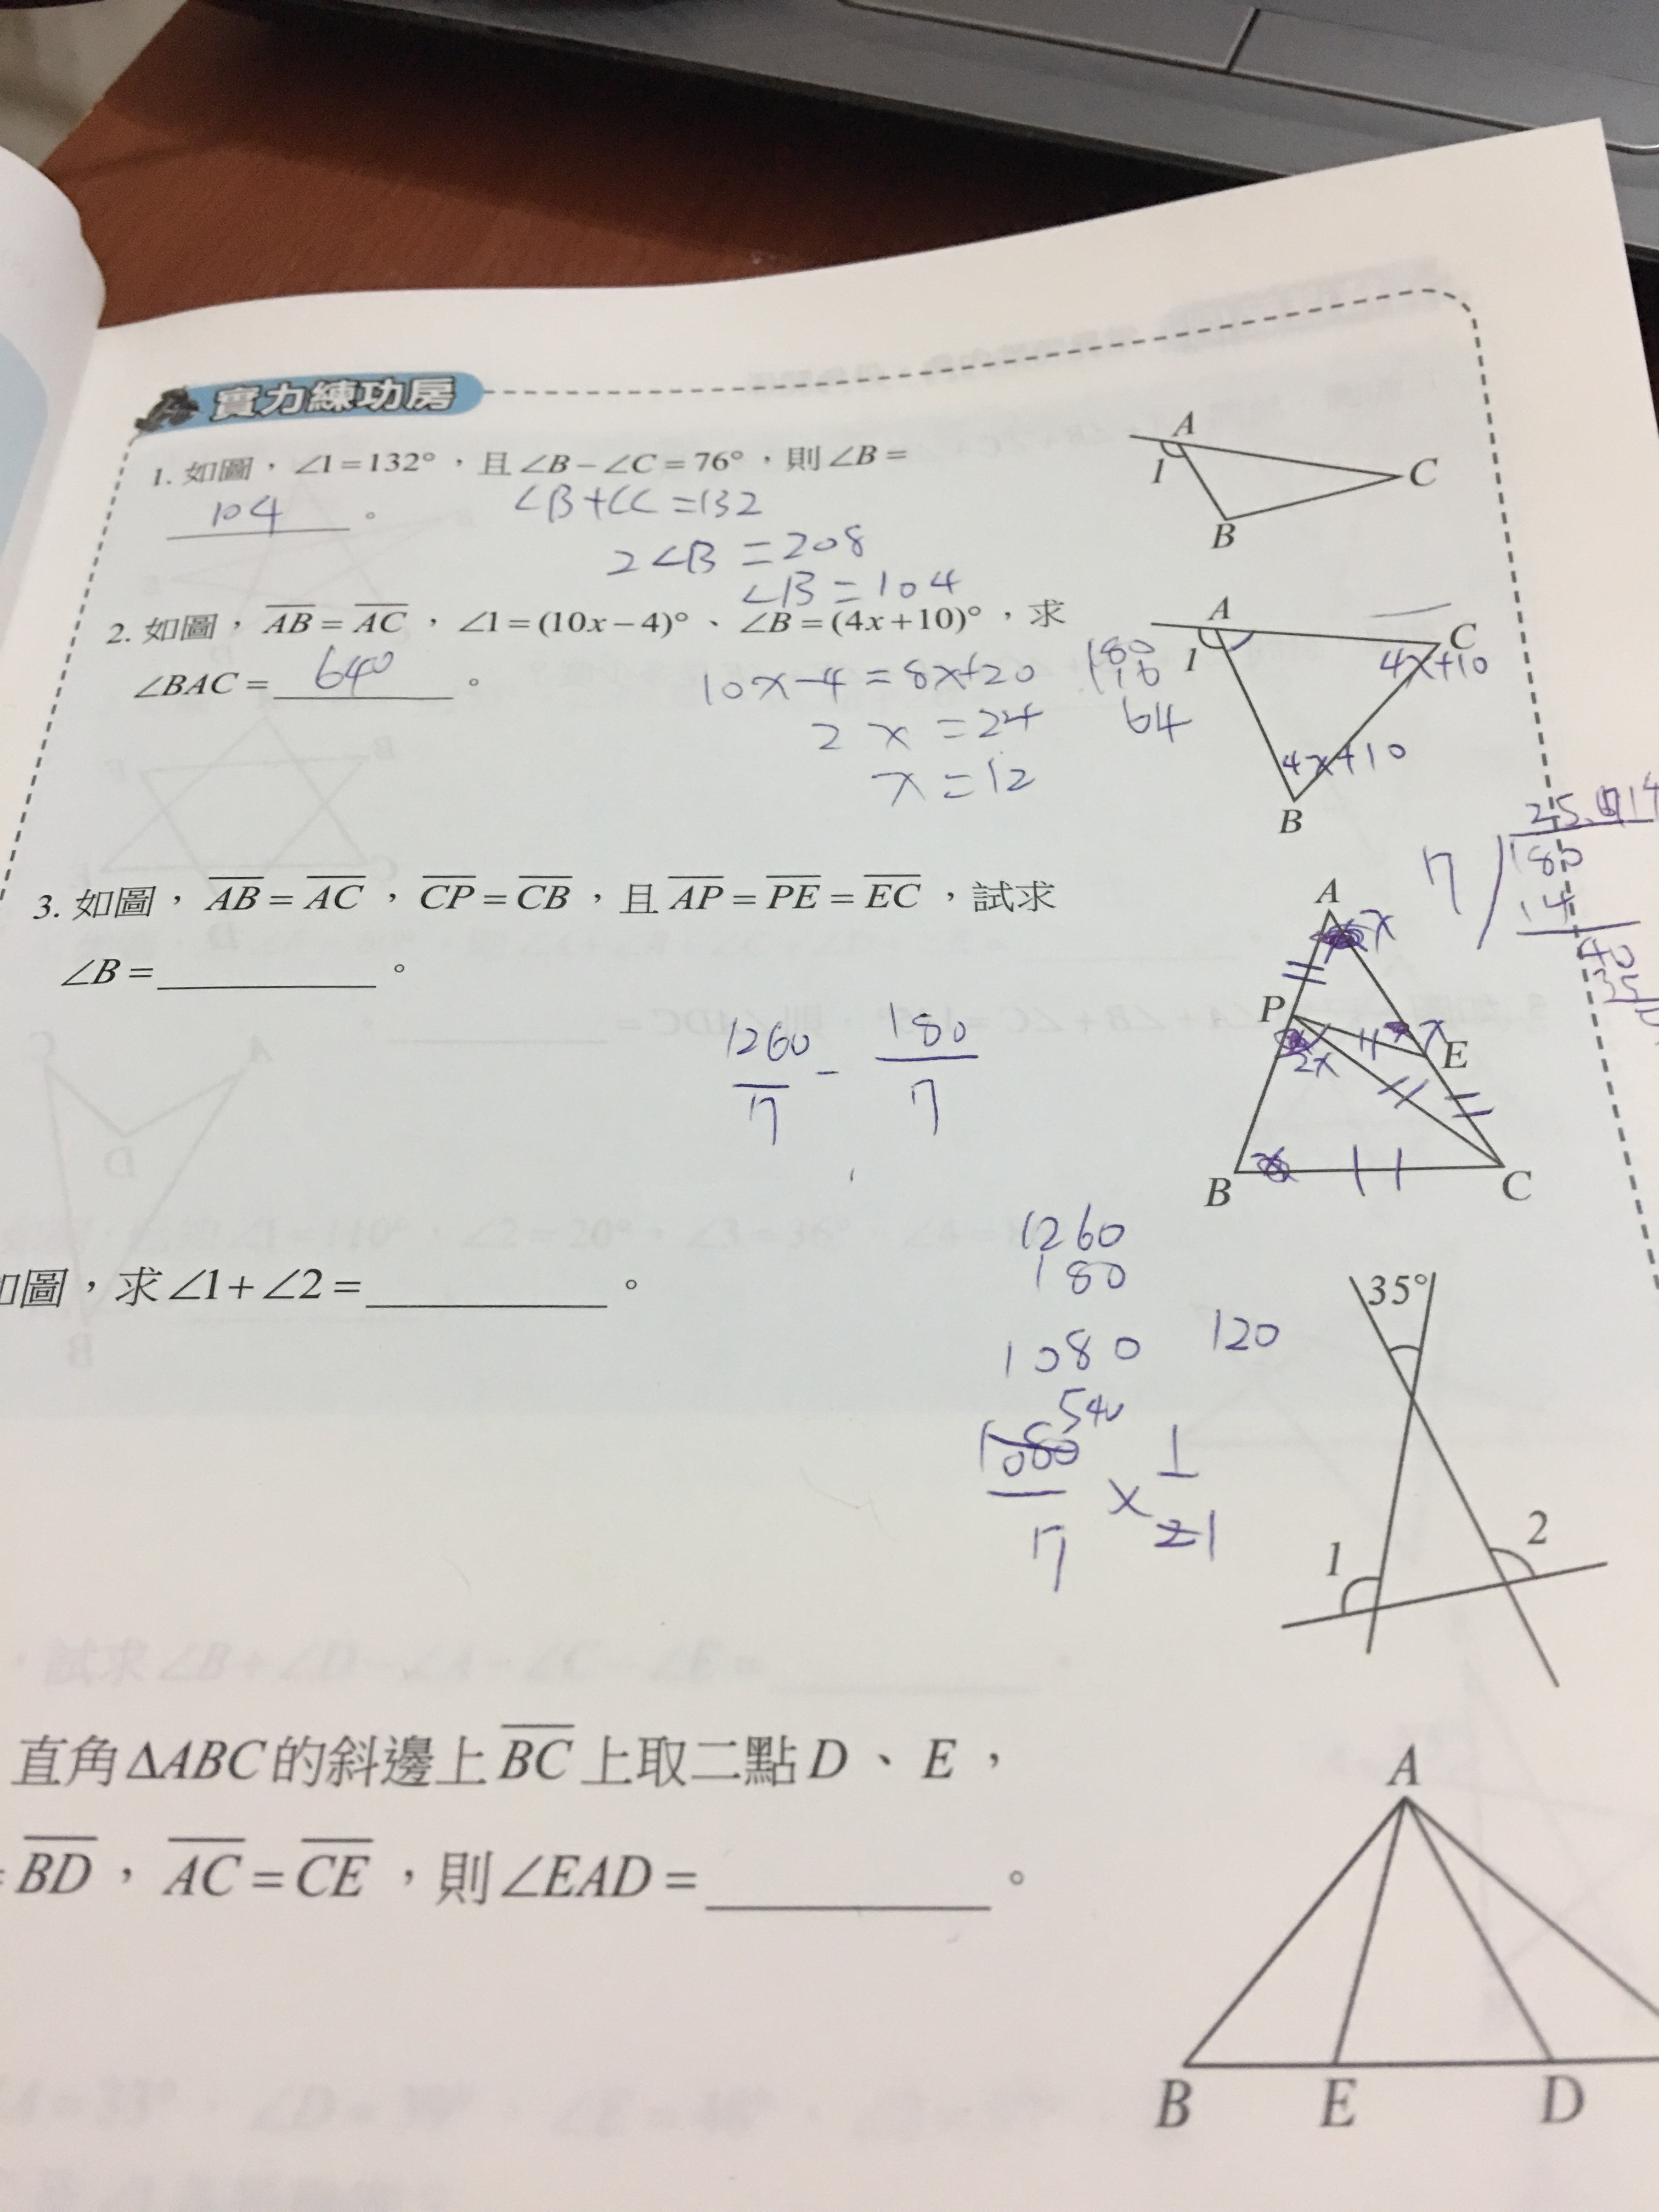 實力練功房
1. 如圖，∠1=132°，且∠B−∠C=76°，則∠B=
104 。
∠B+∠C=132
2∠B=208
∠B=104
A
1
B
C
2. 如圖，AB=AC，∠1=(10x−4)°、∠B=(4x+10)°，求
∠BAC=64° 。
10x−4=8x+20
2x=24
x=12
180
116
64
A
1
C
4x+10
4x+10
B
3. 如圖，AB=AC，CP=CB，且AP=PE=EC，試求
∠B= 。
1260/7 − 180/7
A
x
P
2x
x
E
B
C
7
180
14
40
35
1260
180
1080
120
540
1080/7 × 1/2 1
如圖，求∠1+∠2= 。
35°
1
2
直角ΔABC的斜邊上BC上取二點D、E，
=BD，AC=CE，則∠EAD= 。
A
B
E
D